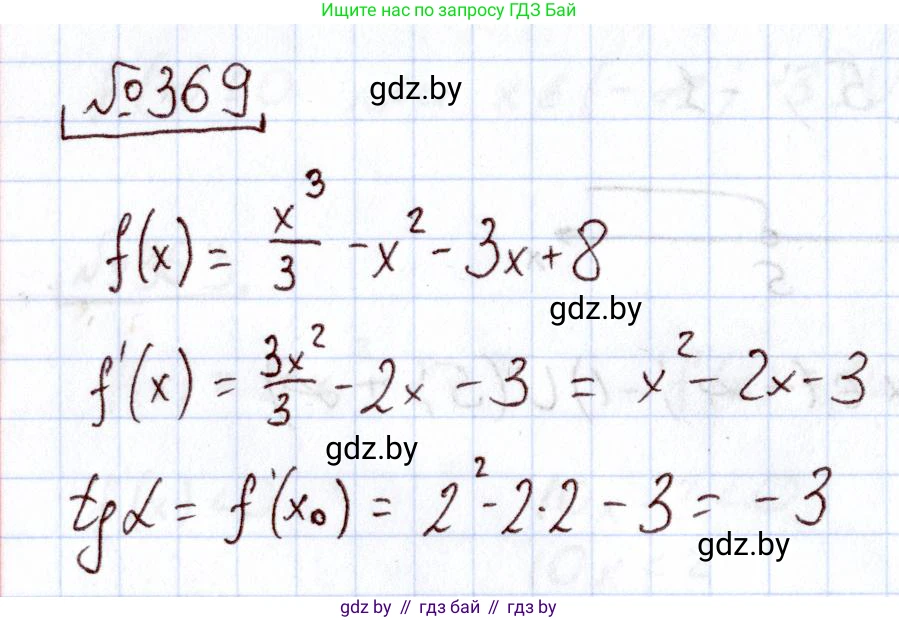 Ищите нас по запросу ГДЗ Бай
№369
gdz.by
f(x) = x³/3 - x² - 3x + 8
gdz.by
f'(x) = 3x²/3 - 2x - 3 = x² - 2x - 3
gdz.by
tgα = f'(x₀) = 2² - 2·2 - 3 = -3
gdz.by
gdz.by // гдз бай // гдз by